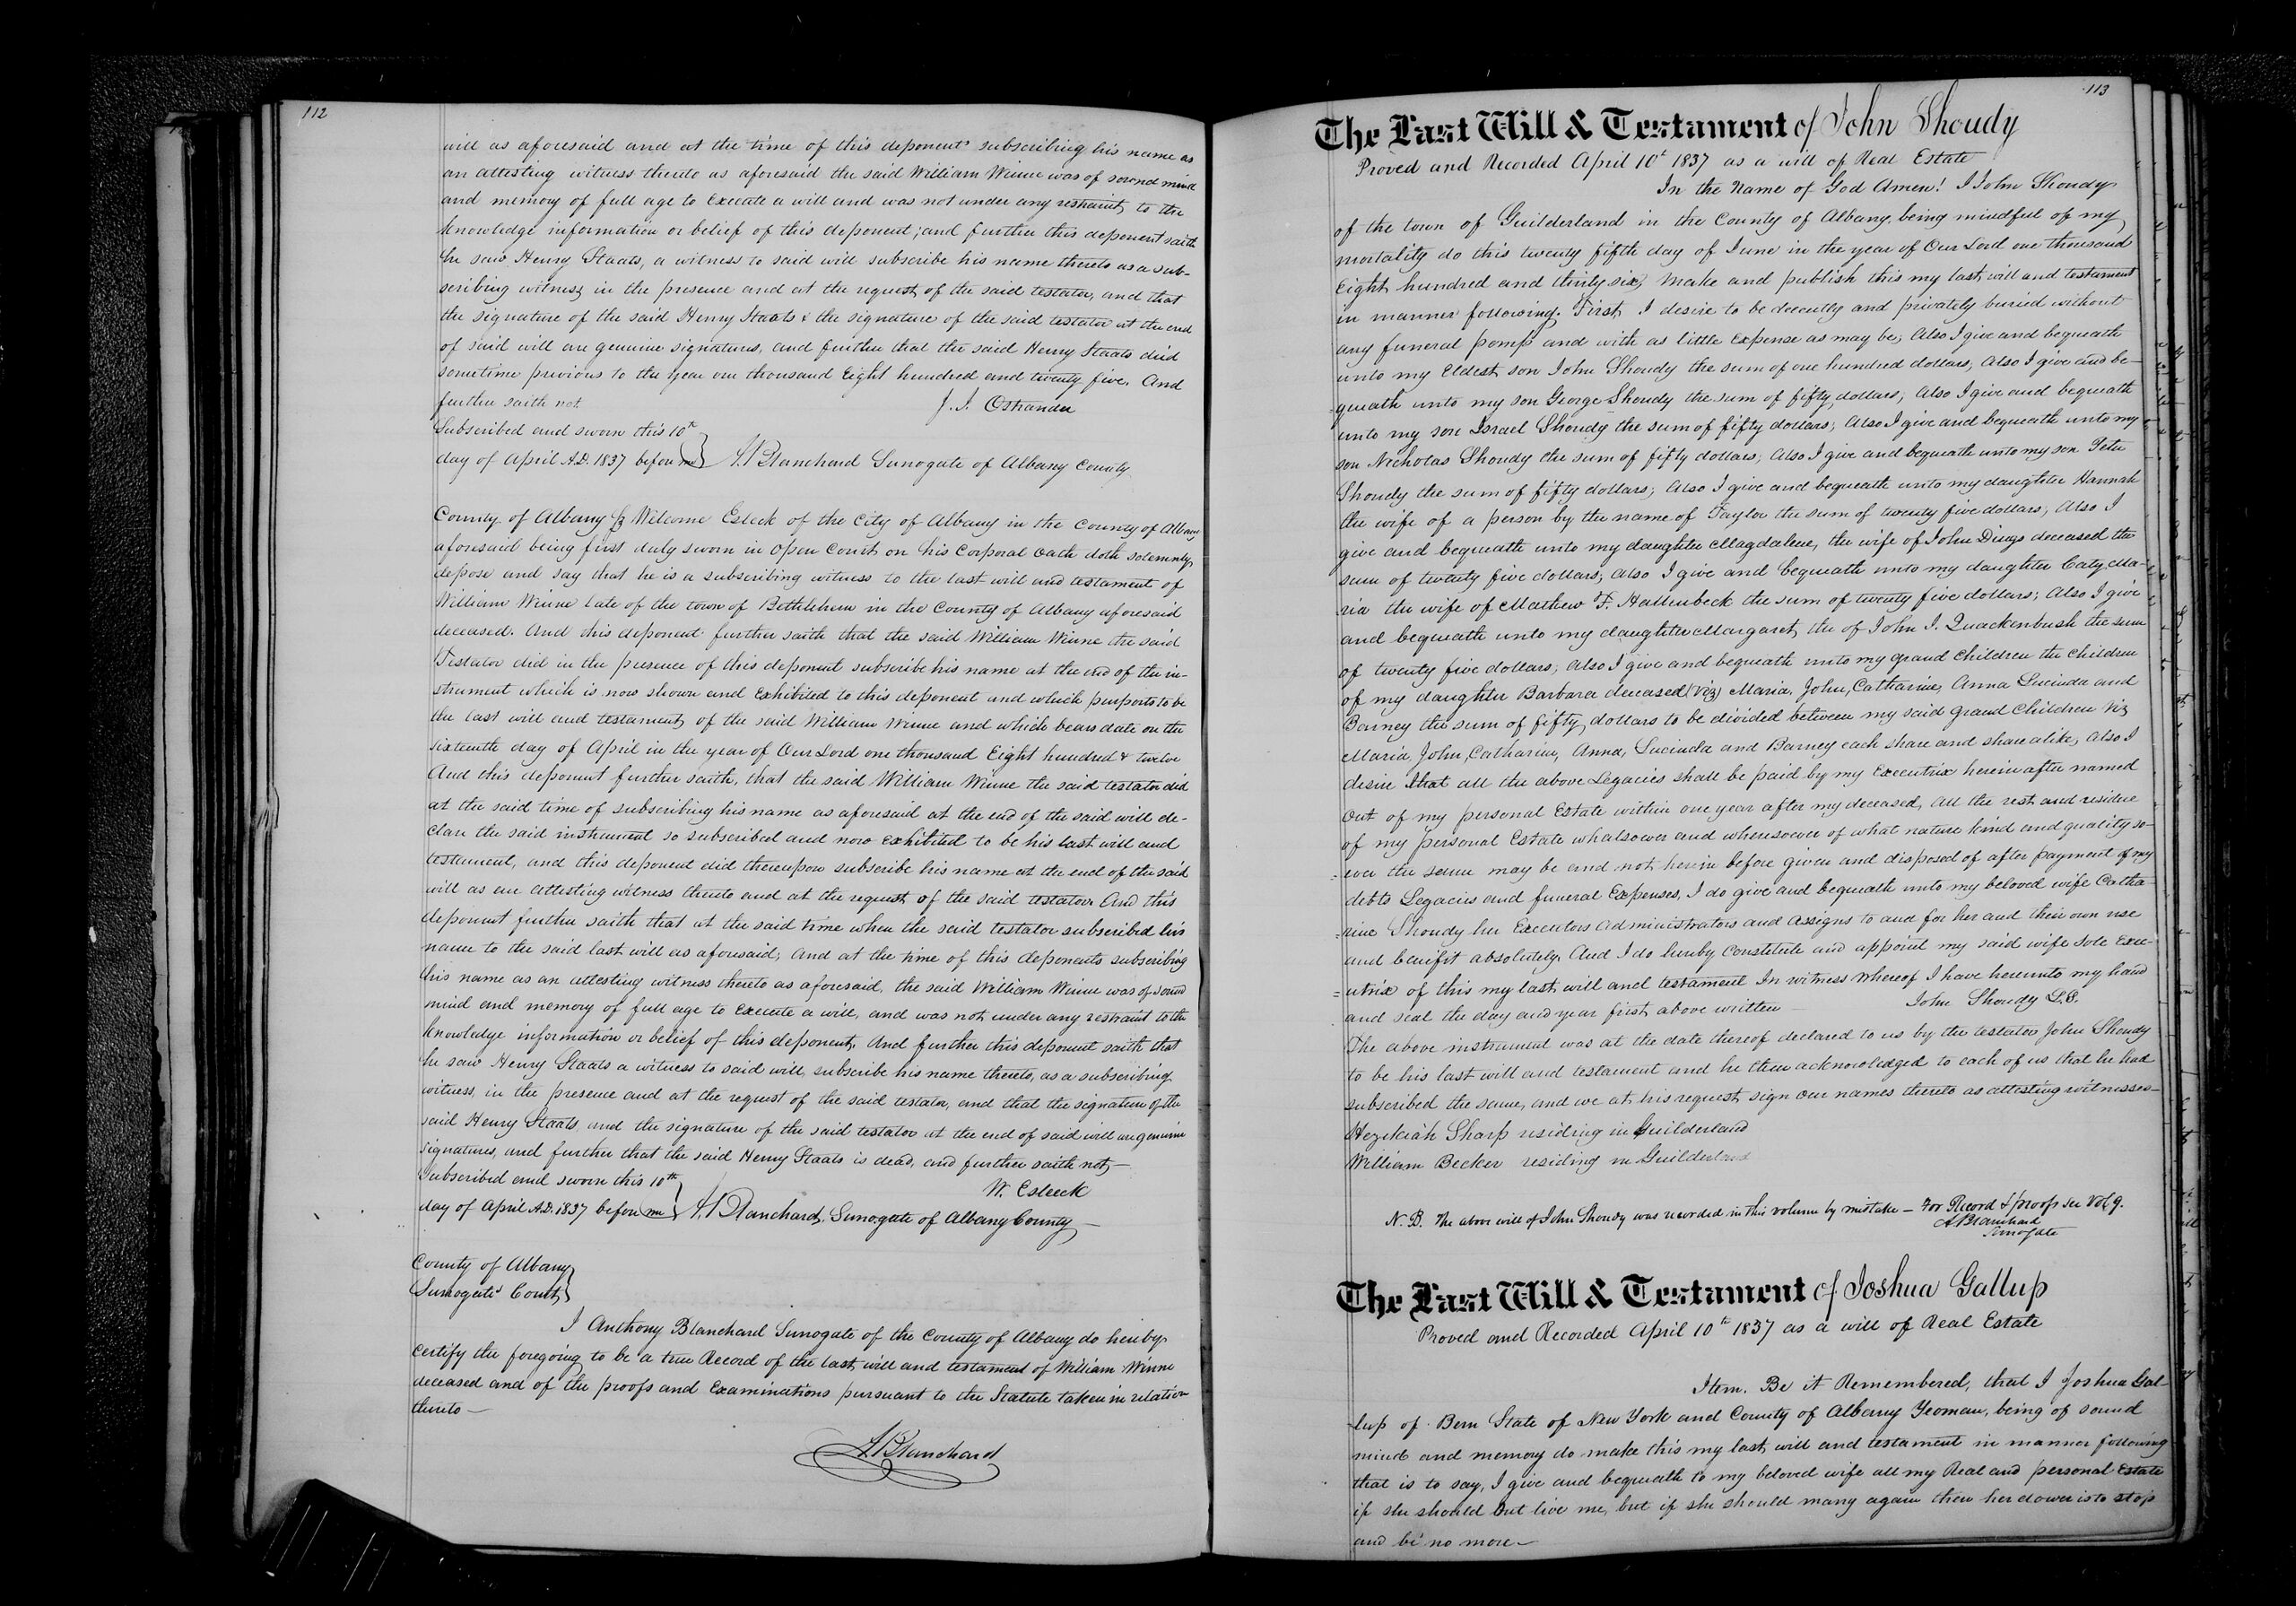 112
will as aforesaid and at the time of this deponents subscribing his name as
an attesting witness thereto as aforesaid the said William Winne was of sound mind
and memory of full age to Execute a will and was not under any restraint, to the
knowledge information or belief of this deponent; and further this deponent saith
he saw Henry Staats, a witness to said will subscribe his name thereto as a sub-
scribing witness in the presence and at the request of the said testator, and that
the signature of the said Henry Staats & the signature of the said testator at the end
of said will are genuine signatures, and further that the said Henry Staats died
sometime previous to the year one thousand Eight hundred and twenty five. And
further saith not.
J. I. Ostrander
Subscribed and sworn this 10th
day of April A.D. 1837 before me } A. Blanchard Surrogate of Albany County
County of Albany ss Welcome Esleeck of the City of Albany in the County of Albany
aforesaid being first duly sworn in Open Court on his Corporal Oach doth solemnly
depose and say that he is a subscribing witness to the last will and testament of
William Winne late of the town of Bethlehem in the County of Albany aforesaid
deceased. And this deponent further saith that the said William Winne the said
Testator did in the presence of this deponent subscribe his name at the end of the in-
strument which is now shown and Exhibited to this deponent and which purports to be
the last will and testament of the said William Winne and which bears date on the
sixteenth day of April in the year of Our Lord one thousand Eight hundred & twelve
And this deponent further saith, that the said William Winne the said testator did
at the said time of subscribing his name as aforesaid at the end of the said will de-
clare the said instrument so subscribed and now exhibited to be his last will and
testament, and this deponent did thereupon subscribe his name at the end of the said
will as an attesting witness thereto and at the request of the said testator. And this
deponent further saith that at the said time when the said testator subscribed his
name to the said last will as aforesaid, and at the time of this deponents subscribing
his name as an attesting witness thereto as aforesaid, the said William Winne was of sound
mind and memory of full age to Execute a will, and was not under any restraint to the
knowledge information or belief of this deponent, And further this deponent saith that
he saw Henry Staats a witness to said will, subscribe his name thereto, as a subscribing
witness, in the presence and at the request of the said testator, and that the signature of the
said Henry Staats and the signature of the said testator at the end of said will are genuine
signatures, and further that the said Henry Staats is dead, and further saith not,—
W. Esleeck
Subscribed and sworn this 10th
day of April A.D. 1837 before me } A. Blanchard, Surrogate of Albany County —
County of Albany
Surrogate's Court }
I Anthony Blanchard Surrogate of the County of Albany do hereby
certify the foregoing to be a true Record of the last will and testament of William Winne
deceased and of the proofs and Examinations pursuant to the Statute taken in relation
thereto —
A. Blanchard
113
The Last Will & Testament of John Shoudy
Proved and Recorded April 10th 1837 as a will of Real Estate
In the Name of God Amen! I John Shoudy
of the town of Guilderland in the County of Albany, being mindful of my
mortality do this twenty fifth day of June in the year of Our Lord one thousand
Eight hundred and thirty six, make and publish this my last will and testament
in manner following. First, I desire to be decently and privately buried without
any funeral pomp and with as little expense as may be, Also I give and bequeath
unto my Eldest son John Shoudy the sum of one hundred dollars, Also I give and be-
queath unto my son George Shoudy the sum of fifty dollars; Also I give and bequeath
unto my son Israel Shoudy the sum of fifty dollars; Also I give and bequeath unto my
son Nicholas Shoudy the sum of fifty dollars; Also I give and bequeath unto my son Peter
Shoudy the sum of fifty dollars; Also I give and bequeath unto my daughter Hannah
the wife of a person by the name of Taylor the sum of twenty five dollars; Also I
give and bequeath unto my daughter Magdalene, the wife of John Dings deceased the
sum of twenty five dollars; Also I give and bequeath unto my daughter Caty Ma-
ria the wife of Mathew F. Hallenbeck the sum of twenty five dollars; Also I give
and bequeath unto my daughter Margaret, the of John I. Quackenbush the sum
of twenty five dollars; Also I give and bequeath unto my grand Children the children
of my daughter Barbara deceased (viz) Maria, John, Catharine, Anna Lucinda and
Barney the sum of fifty dollars to be divided between my said grand Children viz
Maria, John, Catharine, Anna, Lucinda and Barney each share and share alike, Also I
desire that all the above Legacies shall be paid by my Executrix herein after named
out of my personal Estate within one year after my deceased, all the rest and residue
of my personal Estate whatsoever and wheresoever of what nature kind and quality so-
ever the same may be and not herein before given and disposed of after payment of my
debts Legacies and funeral Expenses, I do give and bequeath unto my beloved wife Catha-
rine Shoudy her Executors Administrators and Assigns to and for her and their own use
and benifit absolutely. And I do hereby Constitute and appoint my said wife sole Exec-
utrix of this my last will and testament In witness whereof I have hereunto my hand
and seal the day and year first above written —
John Shoudy L.S.
The above instrument was at the date thereof declared to us by the testator John Shoudy
to be his last will and testament and he then acknowledged to each of us that he had
subscribed the same, and we at his request sign our names thereto as attesting witnesses—
Hezekiah Sharp residing in Guilderland
William Becker residing in Guilderland
N. B. The above will of John Shoudy was recorded in this volume by mistake — For Record & proofs see Vol 9.
A Blanchard
Surrogate
The Last Will & Testament of Joshua Gallup
Proved and Recorded April 10th 1837 as a will of Real Estate
Item. Be it Remembered, that I Joshua Gal-
lup of Bern State of New York and County of Albany Yeoman, being of sound
mind and memory do make this my last will and testament in manner following
that is to say, I give and bequeath to my beloved wife all my Real and personal Estate
if she should out live me, but if she should marry again then her dower is to stop
and be no more—